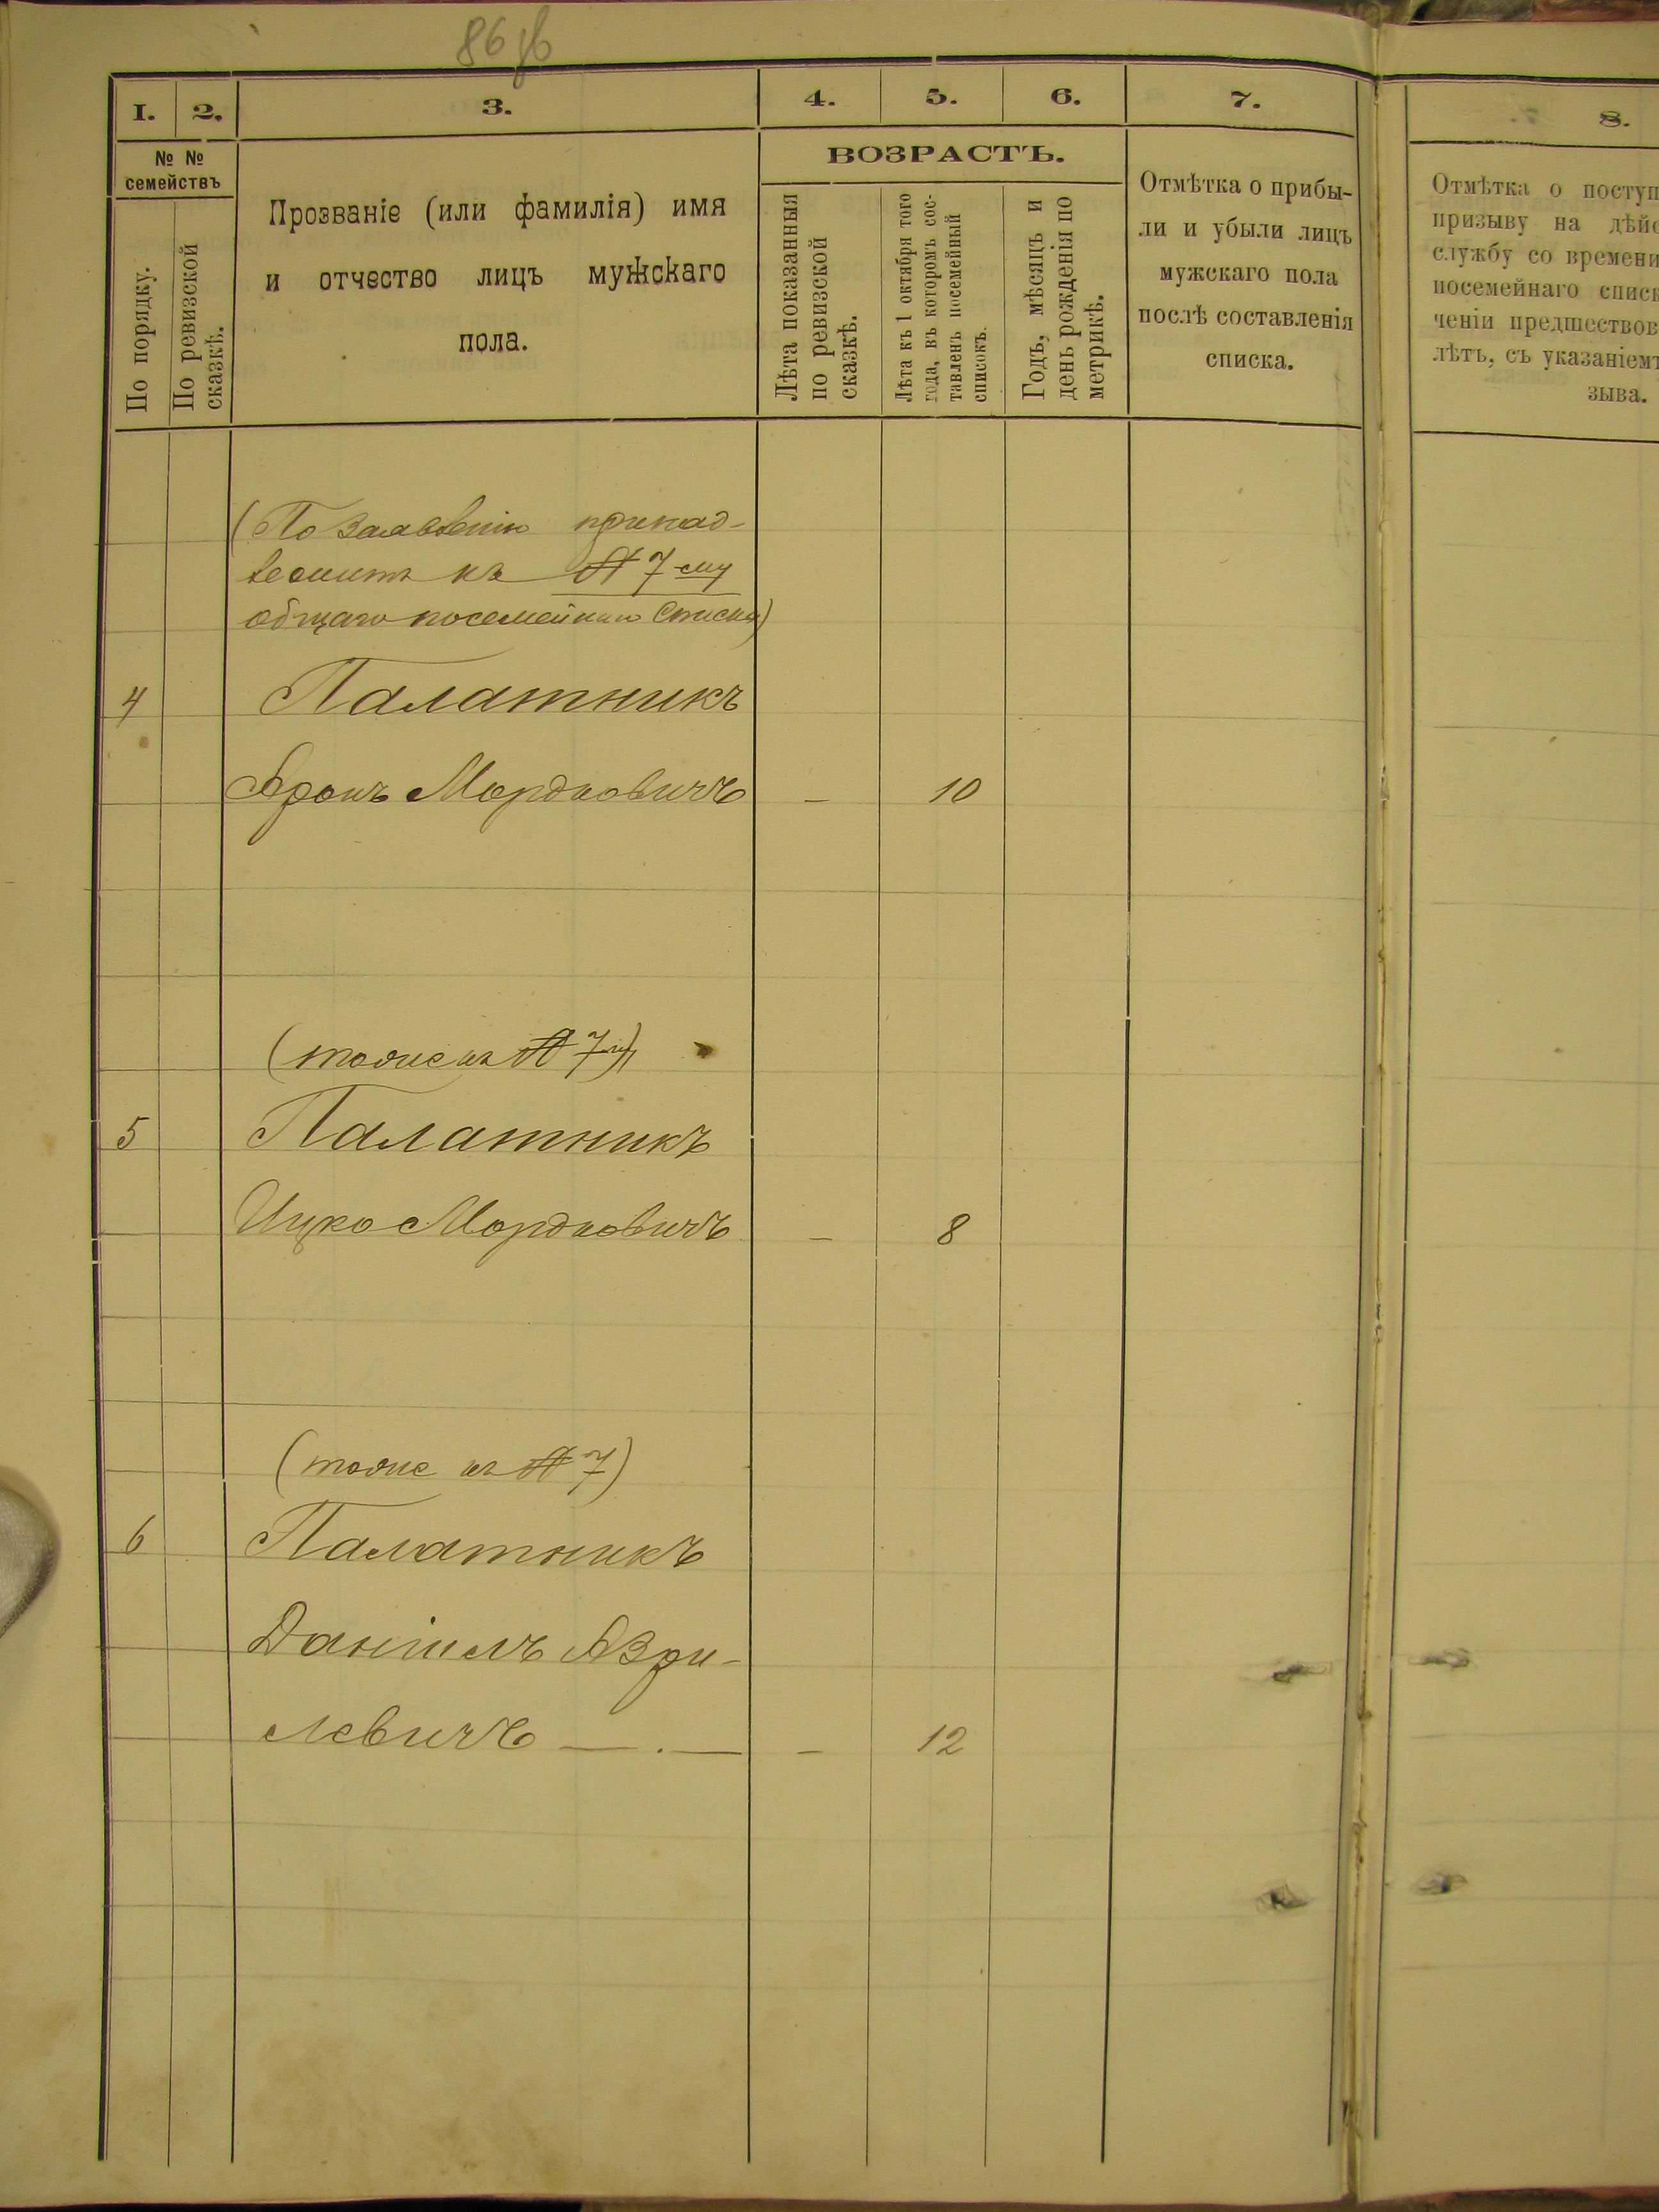 86 об
1.
2.
3.
4.
5.
6.
7.
8.
№ №
семействъ
По порядку.
По ревизской
сказкѣ.
Прозваніе (или фамилія) имя
и отчество лицъ мужскаго
пола.
ВОЗРАСТЪ.
Лѣта показанныя
по ревизской
сказкѣ.
Лѣта къ 1 октября того
года, въ которомъ сос-
тавленъ посемейный
списокъ.
Годъ, мѣсяцъ и
день рожденія по
метрикѣ.
Отмѣтка о прибы-
ли и убыли лицъ
мужскаго пола
послѣ составленія
списка.
Отмѣтка о поступ
призыву на дѣйс
службу со времени
посемейнаго списк
ченіи предшествов
лѣтъ, съ указаніемъ
зыва.
(По заявленію принад-
лежитъ къ № 7-му
общаго посемейнаго списка)
4 Палатникъ
Аронъ Мордковичъ — 10
(тоже къ № 7му)
5 Палатникъ
Ицко Мордковичъ — 8
(тоже къ № 7)
6 Палатникъ
Даніилъ Азри-
левичъ —.— — 12